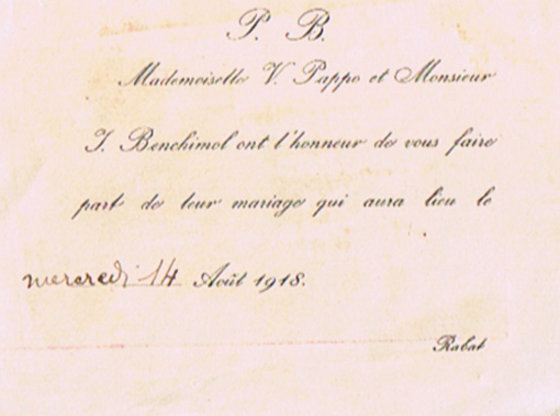 P. B.
Mademoiselle V. Pappo et Monsieur
J. Benchimol ont l'honneur de vous faire
part de leur mariage qui aura lieu le
mercredi 14 Août 1918.
Rabat